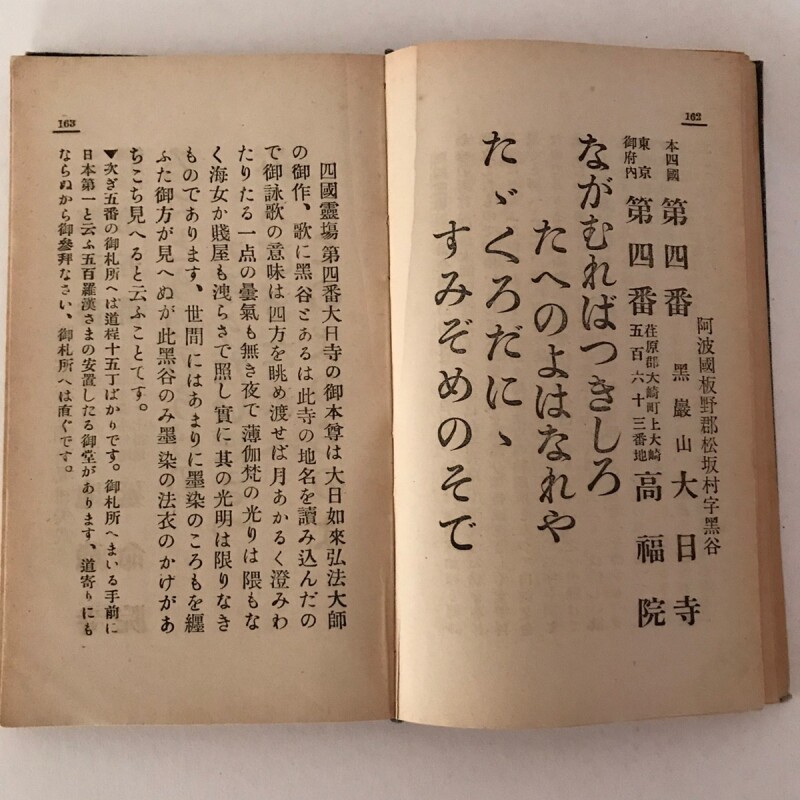 162
阿波國板野郡松坂村字黑谷
本四國 第四番 黑巖山 大日寺
東京御府內 第四番 荏原郡大崎町上大崎五百六十三番地 高福院
ながむればつきしろ
たへのよはなれや
たゞくろだにゝ
すみぞめのそで
163
四國靈塲第四番大日寺の御本尊は大日如來弘法大師
の御作、歌に黑谷とあるは此寺の地名を讀み込んだの
で御詠歌の意味は四方を眺め渡せば月あかるく澄みわ
たりたる一点の曇氣も無き夜で薄伽梵の光りは隈もな
く海女か賤屋も洩らさで照し實に其の光明は限りなき
ものであります、世間にはあまりに墨染のころもを纒
ふた御方が見へぬが此黑谷のみ墨染の法衣のかげがあ
ちこち見へると云ふことです。
▼次ぎ五番の御札所へは道程十五丁ばかりです。御札所へまいる手前に
日本第一と云ふ五百羅漢さまの安置したる御堂があります、道寄りにも
ならぬから御參拜なさい、御札所へは直ぐです。